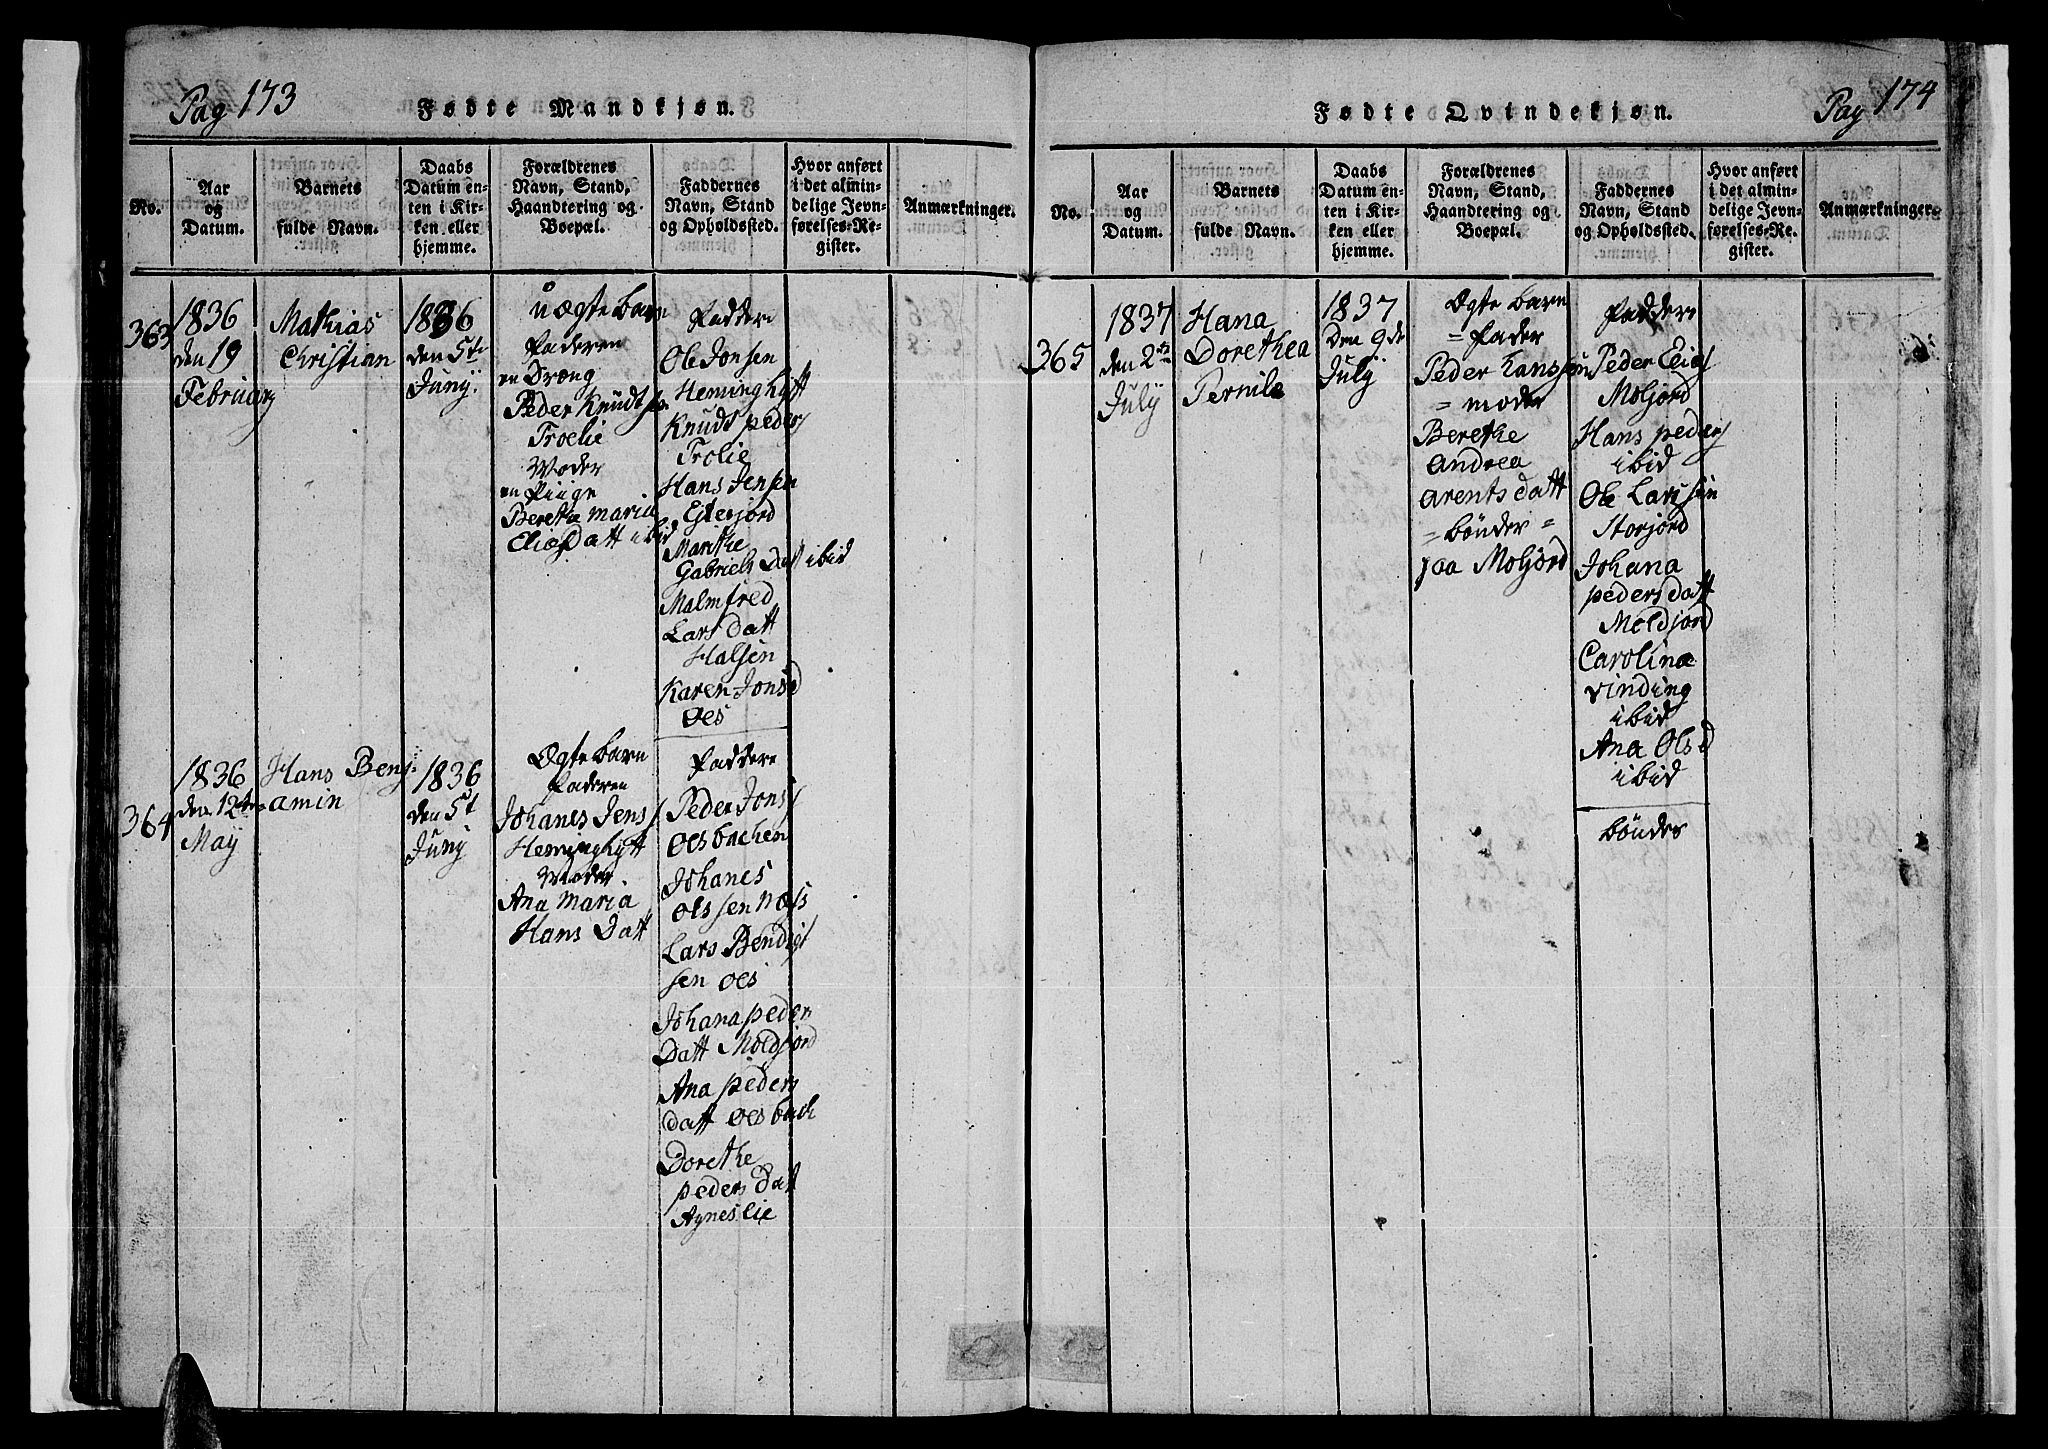 Pag 173
Fødte Mandkjøn.
No.
Aar
og
Datum.
Barnets
fulde Navn.
Daabs
Datum en-
ten i Kir-
ken eller
hjemme.
Forældrenes
Navn, Stand,
Haandtering og
Boepæl.
Faddernes
Navn, Stand
og Opholdssted.
Hvor anført
i det almin-
delige Jevn-
førelses-Re-
gister.
Anmærkninger.
363
1836
den 19
Februarj
Mathias
Christian
1836
den 5te
Junÿ
uægte barn
Faderen
en Dræng
Peder Knudts.
Troelie
Moder
en Piige
Beretha maria
Eliæ Datt ibid
Faddere
Ole Jonsen
Heminghytt
Knudt peders
Trolie
Hans Jensen
Ejterjord
Marithe
Gabriels Dat ibid
Malmfred
Lars datt
Halsen
Karen Jons d
Oes
364
1836
den 12te
Maÿ
Hans Benj-
amin
1836
den 5t
Junÿ
Ægte barn
Faderen
Johanes Jens
Heminghytt
Moder
Ana Maria
Hans Datt
Faddere
Peder Jons
Oesbachen
Johanes
Olssen Næss
Lars Bendigt
sen Oes
Johana peder
Datt Moldjord
Ana peders
datt Oesbach
Dorethe
peders Dat
Agneslie
Fødte Qvindekjøn.
Pag 174
No.
Aar
og
Datum.
Barnets
fulde Navn.
Daabs
Datum en-
ten i Kir-
ken eller
hjemme.
Forældrenes
Navn, Stand,
Haandtering og
Boepæl.
Faddernes
Navn, Stand
og Opholdssted.
Hvor anført
i det almin-
delige Jevn-
førelses-Re-
gister.
Anmærkninger.
365
1837
den 2te
Julÿ
Hana
Dorethea
Pernile
1837
Den 9de
Julÿ
Ægte barn
= Fader
Peder Hanssen
= moder
Berethe
Andrea
arentsdatt
= bønder =
paa Moljord
Faddere
Peder Elias
Moljord
Hans peders
ibid
Ole Larssen
Storjord
Johana
pedersdatt
Moldjord
Carolina
vinding
ibid
Ana Ols d
ibid
bønder